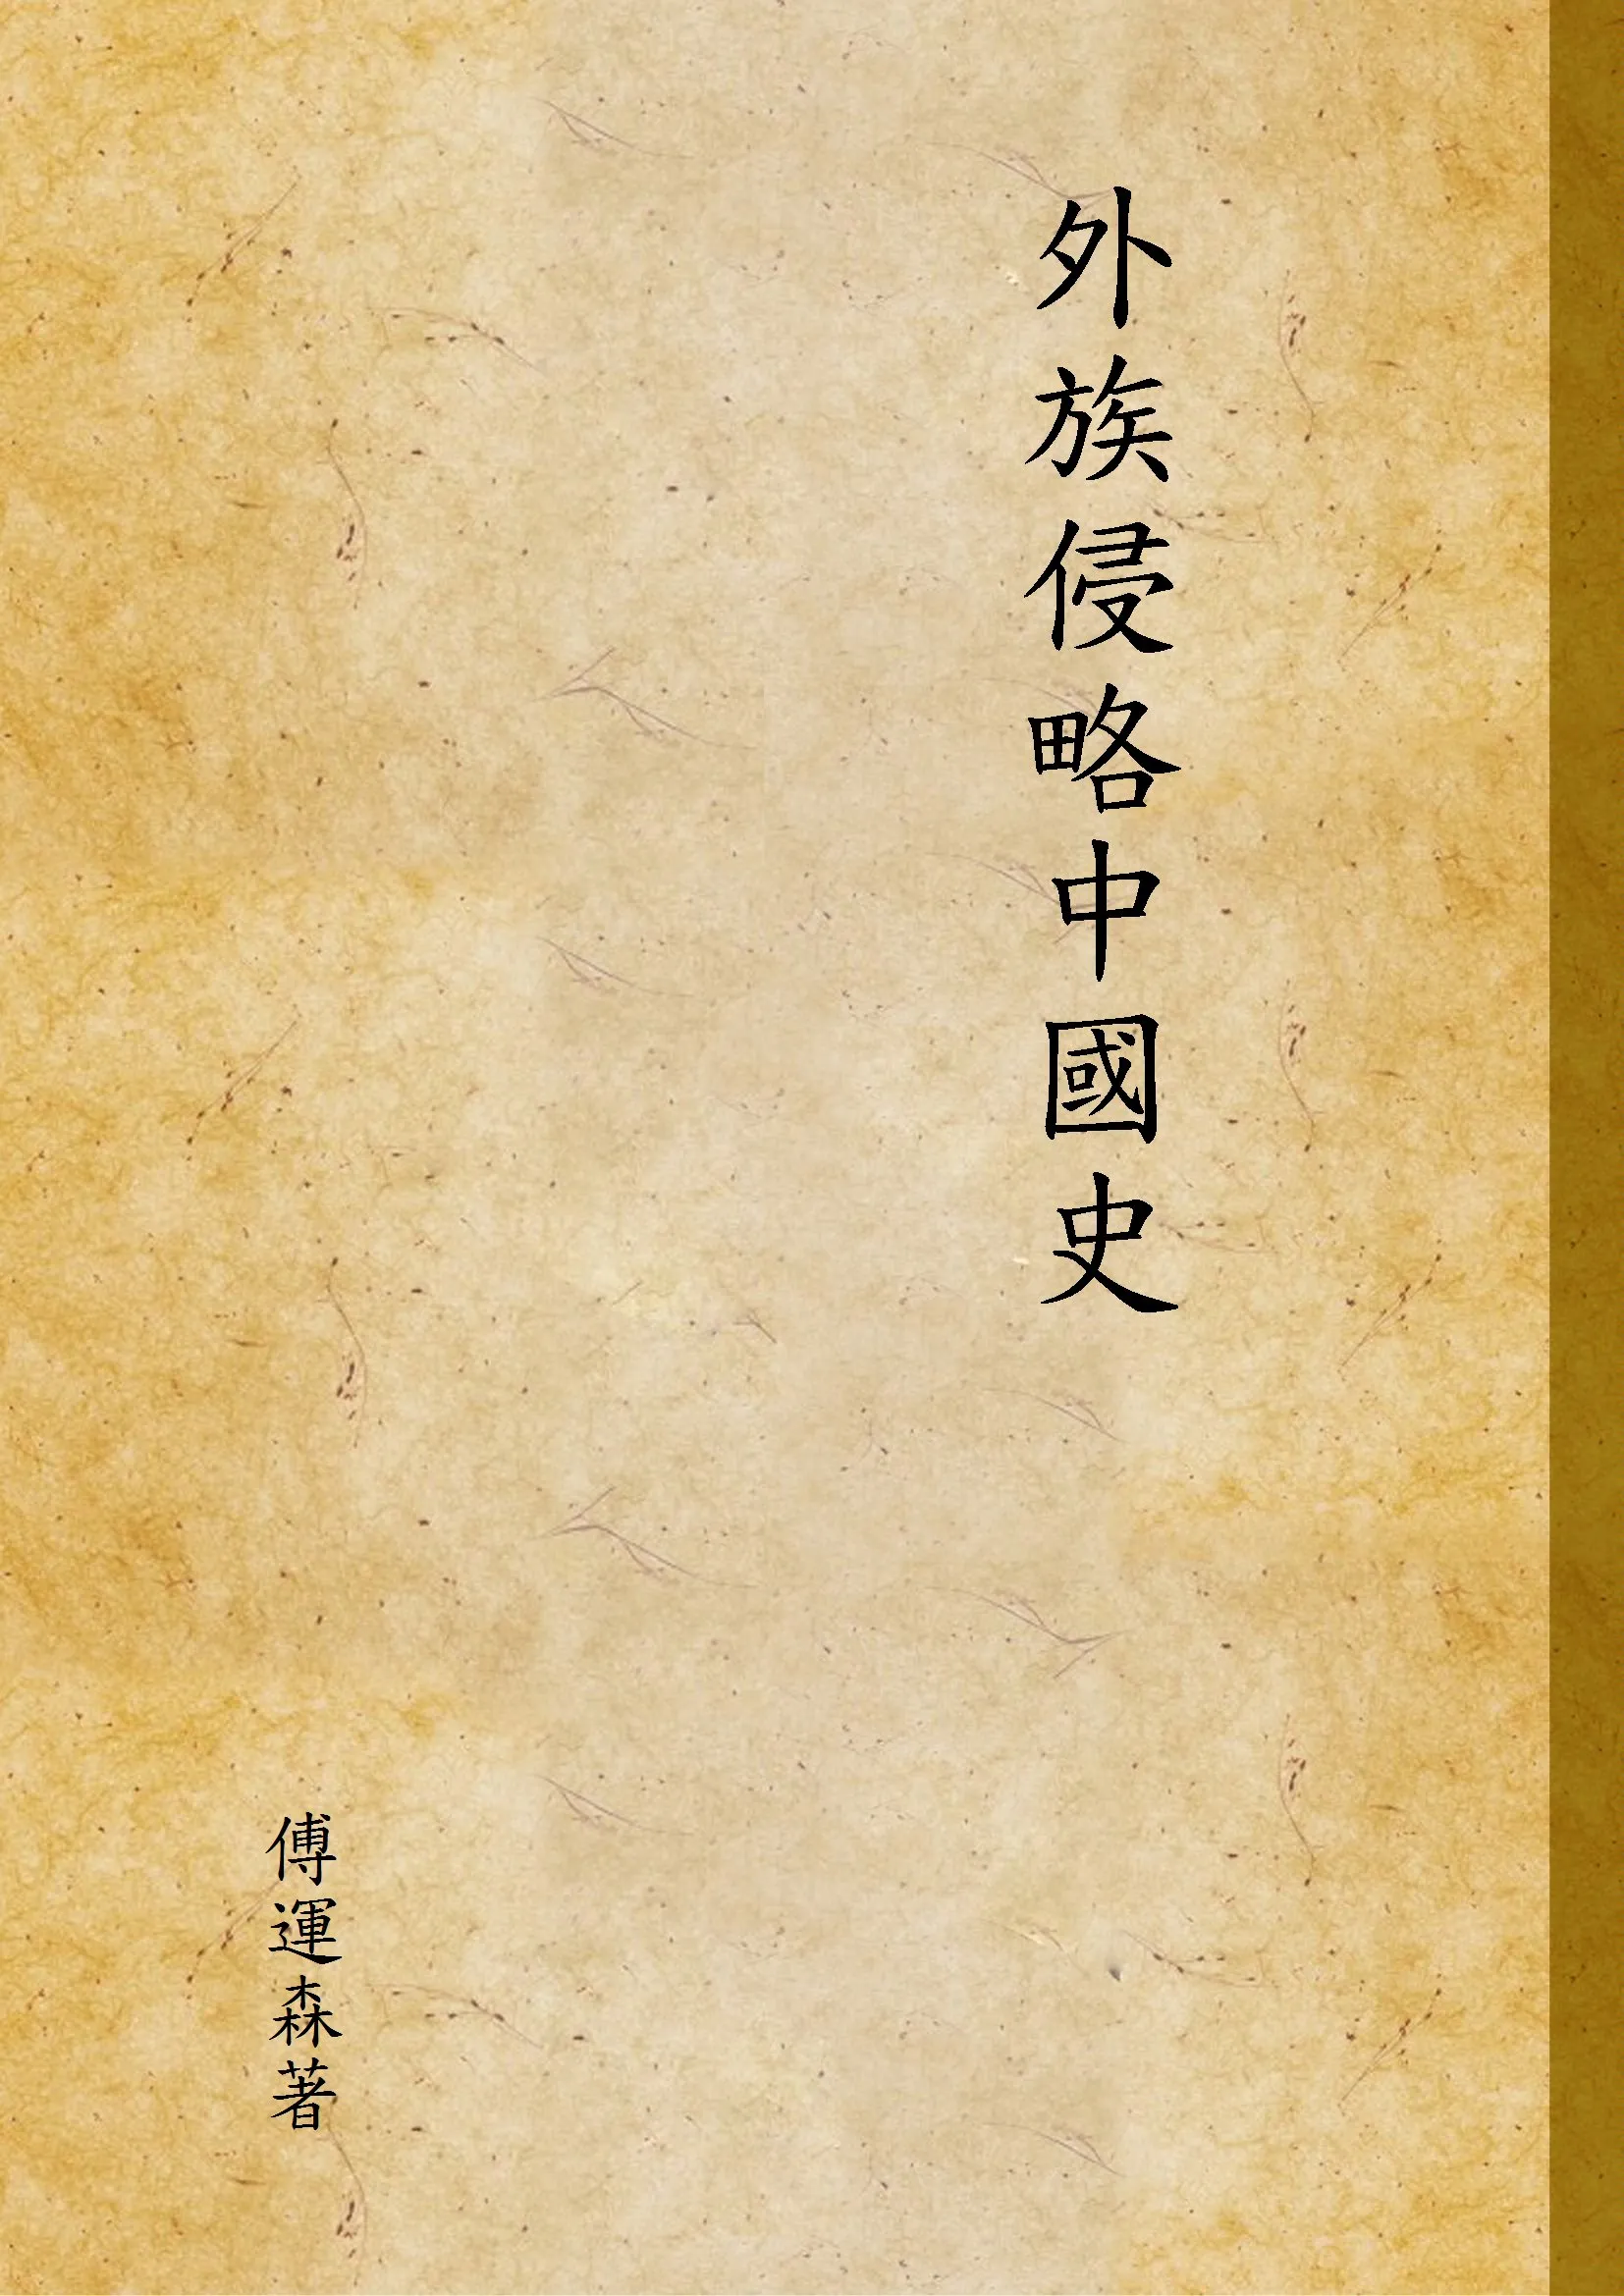 外族侵略中國史
傅運森著